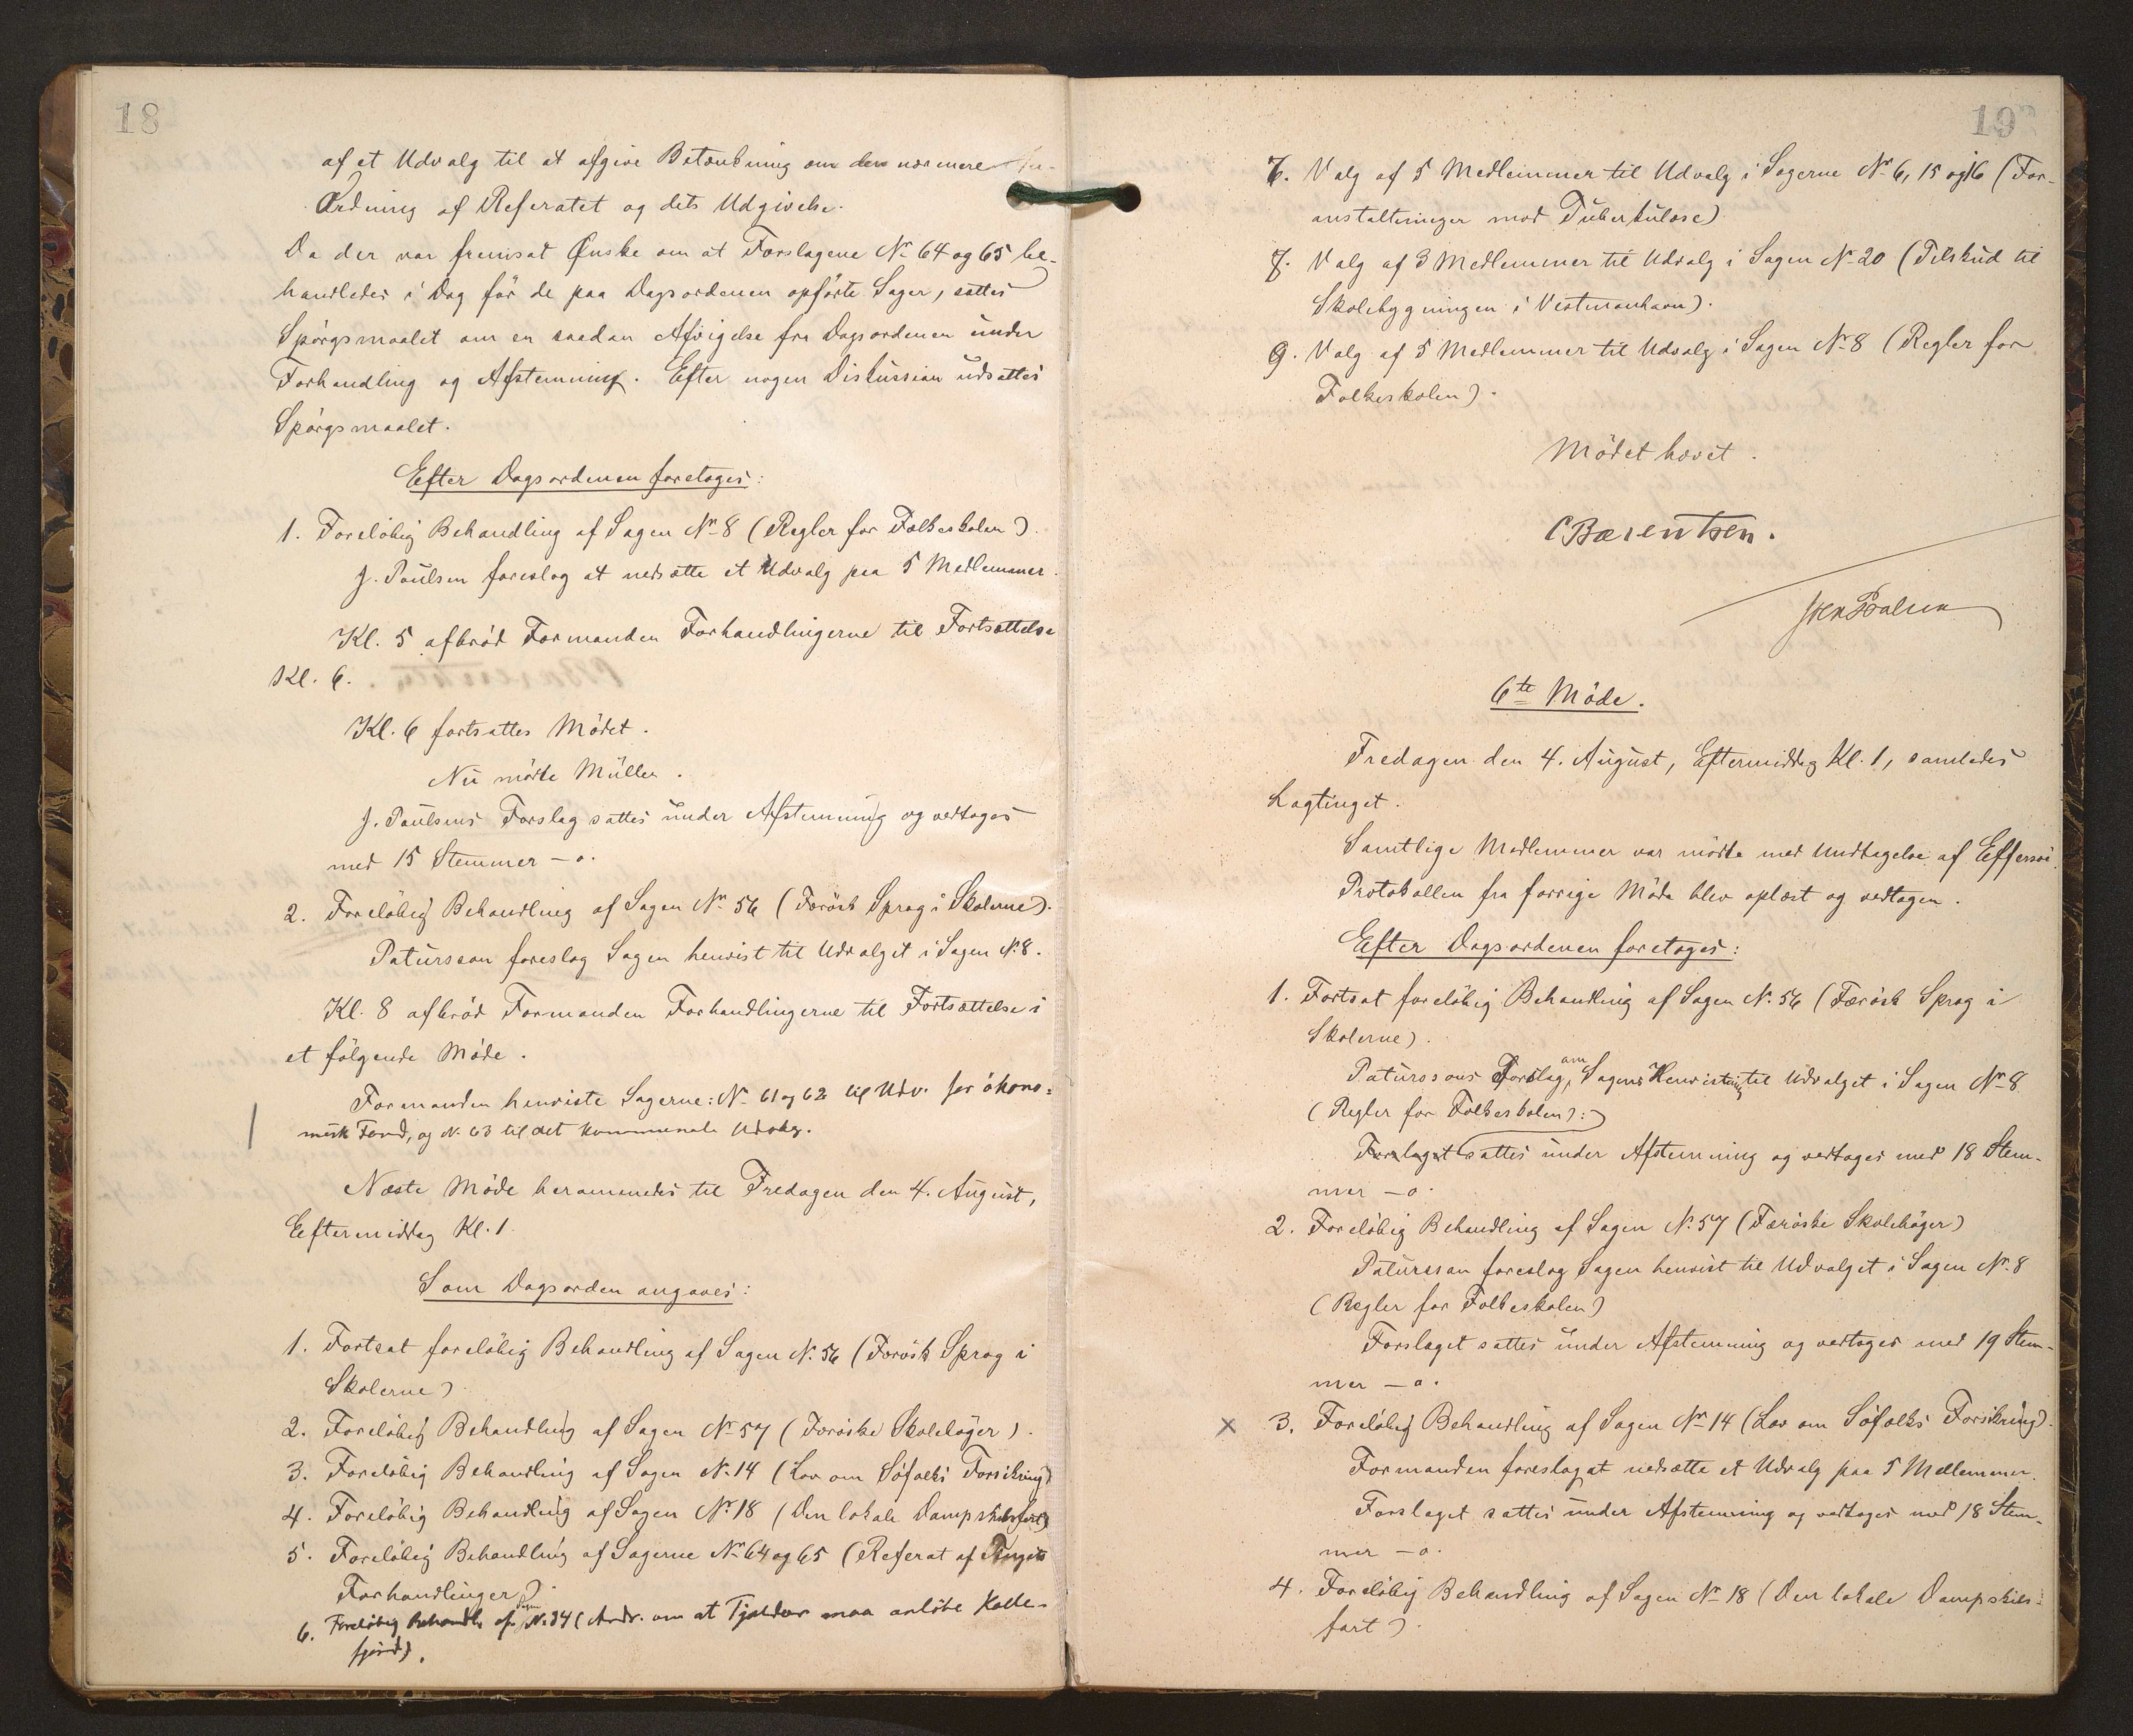 18
af et Udvalg til at afgive Betænkning om den nærmere
Ordning af Referatet og dets Udgivelse.
Da der var fremsat Ønske om at Forslagene No 64 og 65 be-
handledes i Dag før de paa Dagsordenen opførte Sager, sattes
Spørgsmaalet om en saadan Afvigelse fra Dagsordenen under
Forhandling og Afstemning. Efter nogen Diskussion udsattes
Spørgsmaalet.
Efter Dagsordenen foretoges:
1. Foreløbig Behandling af Sagen No 8 (Regler for Folkeskolen).
J. Paulsen foreslog at nedsætte et Udvalg paa 5 Medlemmer.
Kl. 5 afbrød Formanden Forhandlingerne til Fortsættelse
Kl. 6.
Kl. 6 fortsattes Mødet.
Nu mødte Müller.
J. Paulsens Forslag sattes under Afstemning og vedtoges
med 15 Stemmer – o.
2. Foreløbig Behandling af Sagen No 56 (Færøsk Sprog i Skolerne).
Patursson foreslog Sagen henvist til Udvalget i Sagen No 8.
Kl. 8 afbrød Formanden Forhandlingerne til Fortsættelse i
et følgende Møde.
Formanden henviste Sagerne: No 61 og 62 til Udv. for økono-
misk Fond, og No 63 til det kommunale Udvalg.
Næste Møde berammedes til Fredagen den 4. August,
Eftermiddag Kl. 1.
Som Dagsorden angaves:
1. Fortsat foreløbig Behandling af Sagen No 56 (Færøsk Sprog i
Skolerne)
2. Foreløbig Behandling af Sagen No 57 (Færøske Skolebøger).
3. Foreløbig Behandling af Sagen No 14 (Lov om Søfolks Forsikring)
4. Foreløbig Behandling af Sagen No 18 (Den lokale Dampskibsfart)
5. Foreløbig Behandling af Sagerne No 64 og 65 (Referat af Tingets
Forhandlinger).
6. Foreløbig Behandl. af Sagen No 34 (Andr. om at Tjaldur maa anløbe Kolle-
fjord).
19
6. Valg af 5 Medlemmer til Udvalg i Sagerne No 6, 15 og 16 (For-
anstaltninger mod Tuberkulose)
7. Valg af 3 Medlemmer til Udvalg i Sagen No 20 (Tilskud til
Skolebygningen i Vestmanhavn).
9. Valg af 5 Medlemmer til Udvalg i Sagen No 8 (Regler for
Folkeskolen).
Mødet hævet.
C Bærentsen.
6te Møde.
Fredagen den 4. August, Eftermiddag Kl. 1, samledes
Lagtinget.
Samtlige Medlemmer var mødte med Undtagelse af Effersøe.
Protokollen fra forrige Møde blev oplæst og vedtagen.
Efter Dagsordenen foretoges:
1. Fortsat foreløbig Behandling af Sagen No 56 (Færøsk Sprog i
Skolerne).
Paturssons Forslag om Sagens Henvisning til Udvalget i Sagen No 8
(Regler for Folkeskolen):
Forslaget sattes under Afstemning og vedtoges med 18 Stem-
mer – o.
2. Foreløbig Behandling af Sagen No 57 (Færøske Skolebøger)
Patursson foreslog Sagen henvist til Udvalget i Sagen No 8
(Regler for Folkeskolen)
Forslaget sattes under Afstemning og vedtoges med 19 Stem-
mer – o.
x 3. Foreløbig Behandling af Sagen No 14 (Lov om Søfolks Forsikring).
Formanden foreslog at nedsætte et Udvalg paa 5 Medlemmer.
Forslaget sattes under Afstemning og vedtoges med 18 Stem-
mer – o.
4. Foreløbig Behandling af Sagen No 18 (Den lokale Dampskibs-
fart).